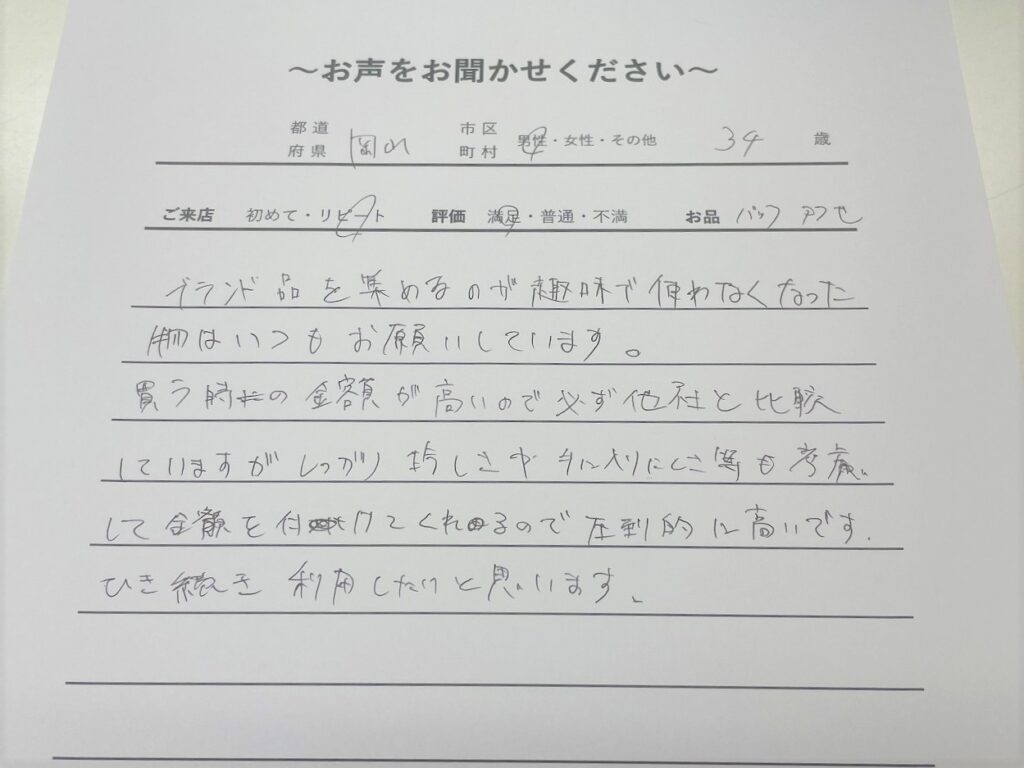 〜お声をお聞かせください〜
都道府県 岡山 市区町村 男性・女性・その他 34 歳
ご来店 初めて・リピート 評価 満足・普通・不満 お品 バッグ アクセ
ブランド品を集めるのが趣味で使わなくなった
物はいつもお願いしています。
買う時の金額が高いので必ず他社と比較
していますがしっかり珍しさや手に入りにくさ等も考慮
して金額を付けてくれるので圧倒的に高いです。
ひき続き利用したいと思います。